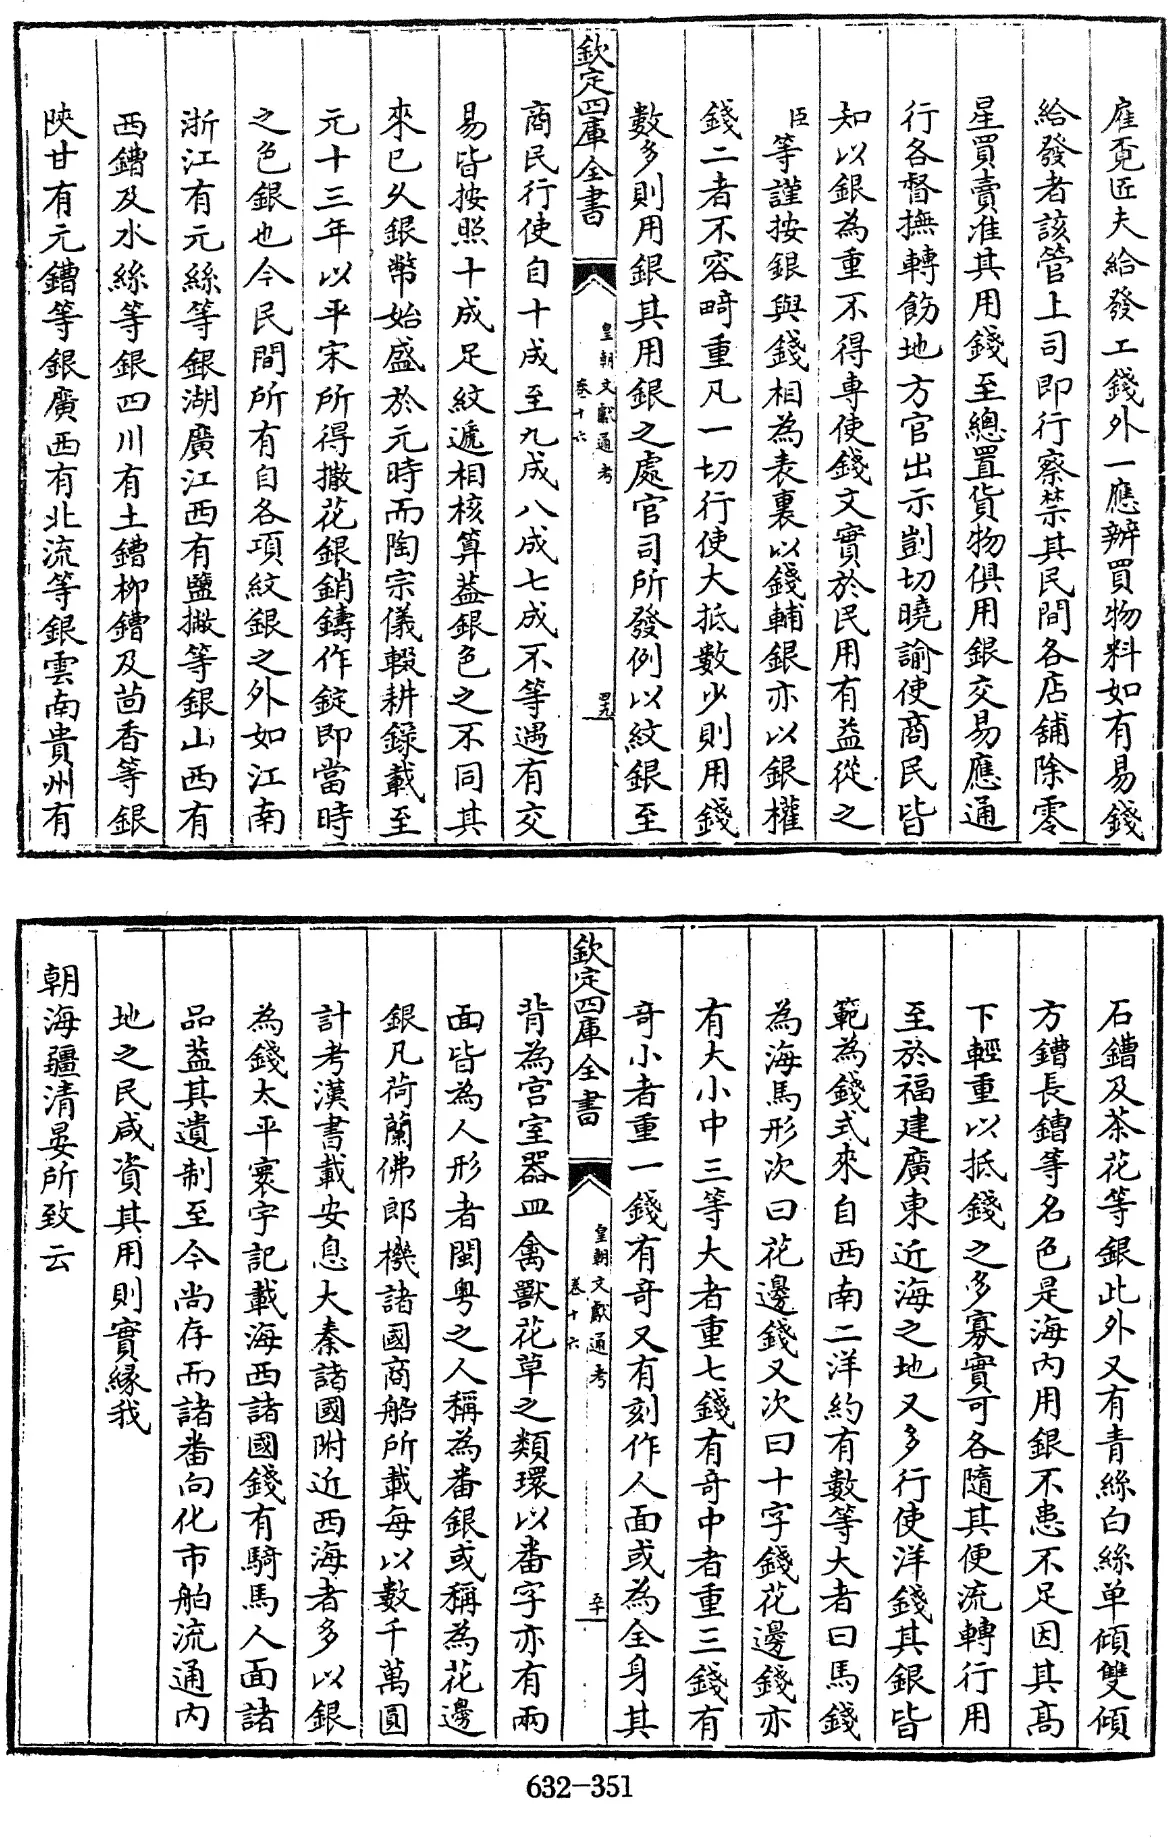 雇覔匠夫給發工錢外一應辦買物料如有易錢
給發者該管上司即行察禁其民間各店舖除零
星買賣准其用錢至總置貨物俱用銀交易應通
行各督撫轉飭地方官出示剴切曉諭使商民皆
知以銀為重不得專使錢文實於民用有益從之
臣等謹按銀與錢相為表裏以錢輔銀亦以銀權
錢二者不容畸重凡一切行使大抵數少則用錢
數多則用銀其用銀之處官司所發例以紋銀至
欽定四庫全書
皇朝文獻通考
卷十六
罕九
商民行使自十成至九成八成七成不等遇有交
易皆按照十成足紋遞相核算葢銀色之不同其
來已乆銀幣始盛於元時而陶宗儀輟耕錄載至
元十三年以平宋所得撒花銀銷鑄作錠即當時
之色銀也今民間所有自各項紋銀之外如江南
浙江有元絲等銀湖廣江西有鹽撒等銀山西有
西鏪及水絲等銀四川有土鏪柳鏪及茴香等銀
陜甘有元鏪等銀廣西有北流等銀雲南貴州有
石鏪及茶花等銀此外又有青絲白絲单傾雙傾
方鏪長鏪等名色是海内用銀不患不足因其髙
下輕重以抵錢之多寡實可各隨其便流轉行用
至於福建廣東近海之地又多行使洋錢其銀皆
範為錢式來自西南二洋約有數等大者曰馬錢
為海馬形次曰花邊錢又次曰十字錢花邊錢亦
有大小中三等大者重七錢有竒中者重三錢有
竒小者重一錢有竒又有刻作人面或為全身其
欽定四庫全書
皇朝文獻通考
卷十六
平
背為宫室器皿禽獸花草之類環以番字亦有兩
面皆為人形者閩粤之人稱為番銀或稱為花邊
銀凡荷蘭佛郎機諸國商船所載每以數千萬圓
計考漢書載安息大秦諸國附近西海者多以銀
為錢太平寰宇記載海西諸國錢有騎馬人面諸
品葢其遺制至今尚存而諸番向化市舶流通内
地之民咸資其用則實縁我
朝海疆清晏所致云
632-351